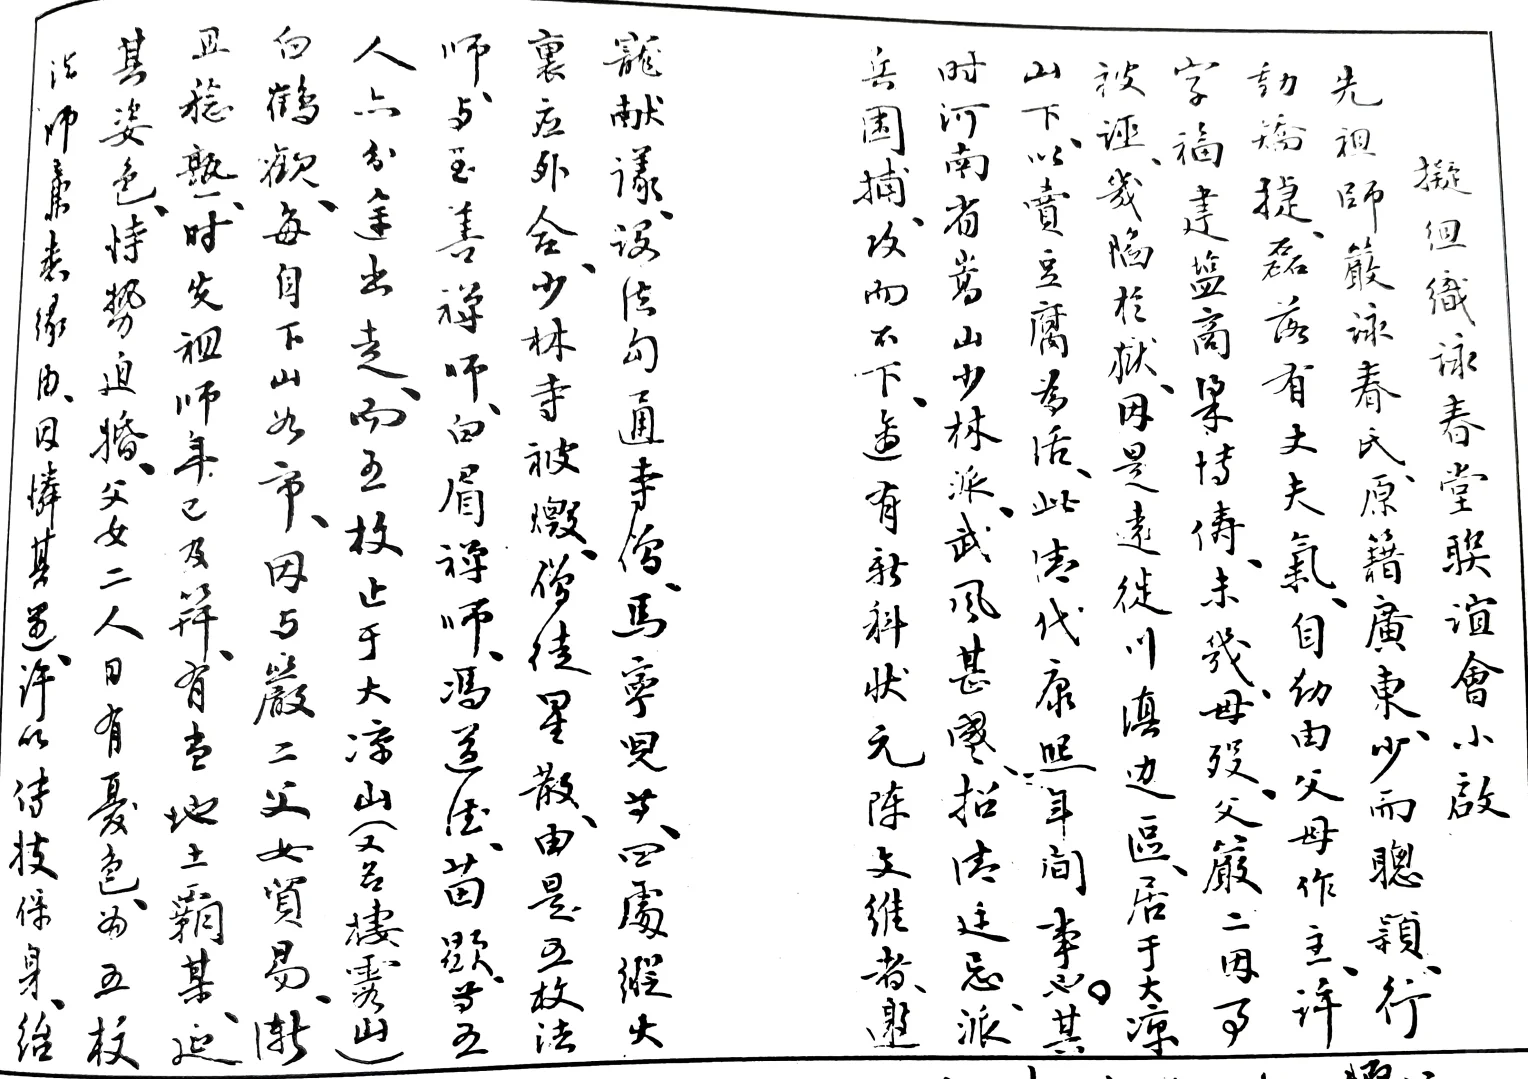 擬组織詠春堂聯誼會小啟
先祖師嚴詠春氏、原籍廣東、少而聰穎、行
動矯捷、磊落有丈夫氣、自幼由父母作主、許
字福建盐商梁博俦、未幾、母殁、父嚴二因事
被誣、幾陷於獄、因是遠徙川滇边區、居于大凉
山下、以賣豆腐為活、此清代康熙年间事也。其
时河南省嵩山少林派、武风甚盛、招清廷忌、派
兵围捕、攻而不下、適有新科状元陈文维者、邀
寵献議、设法勾通寺僧、馬寧児等、四處縱火
裏应外合、少林寺被燬、僧徒星散、由是五枚法
师、与至善禅师、白眉禅师、馮道德、苗顕等五
人亦分途出走、而五枚止于大凉山（又名棲霞山）
白鹤观、每自下山於市、因与嚴二父女貿易、漸
且稔熟、时先祖师年已及笄、有当地土霸某、延
其姿色、恃势迫婚、父女二人日有憂色、为五枚
法师廉悉缘由、因憐其遇、许以传技保身、给